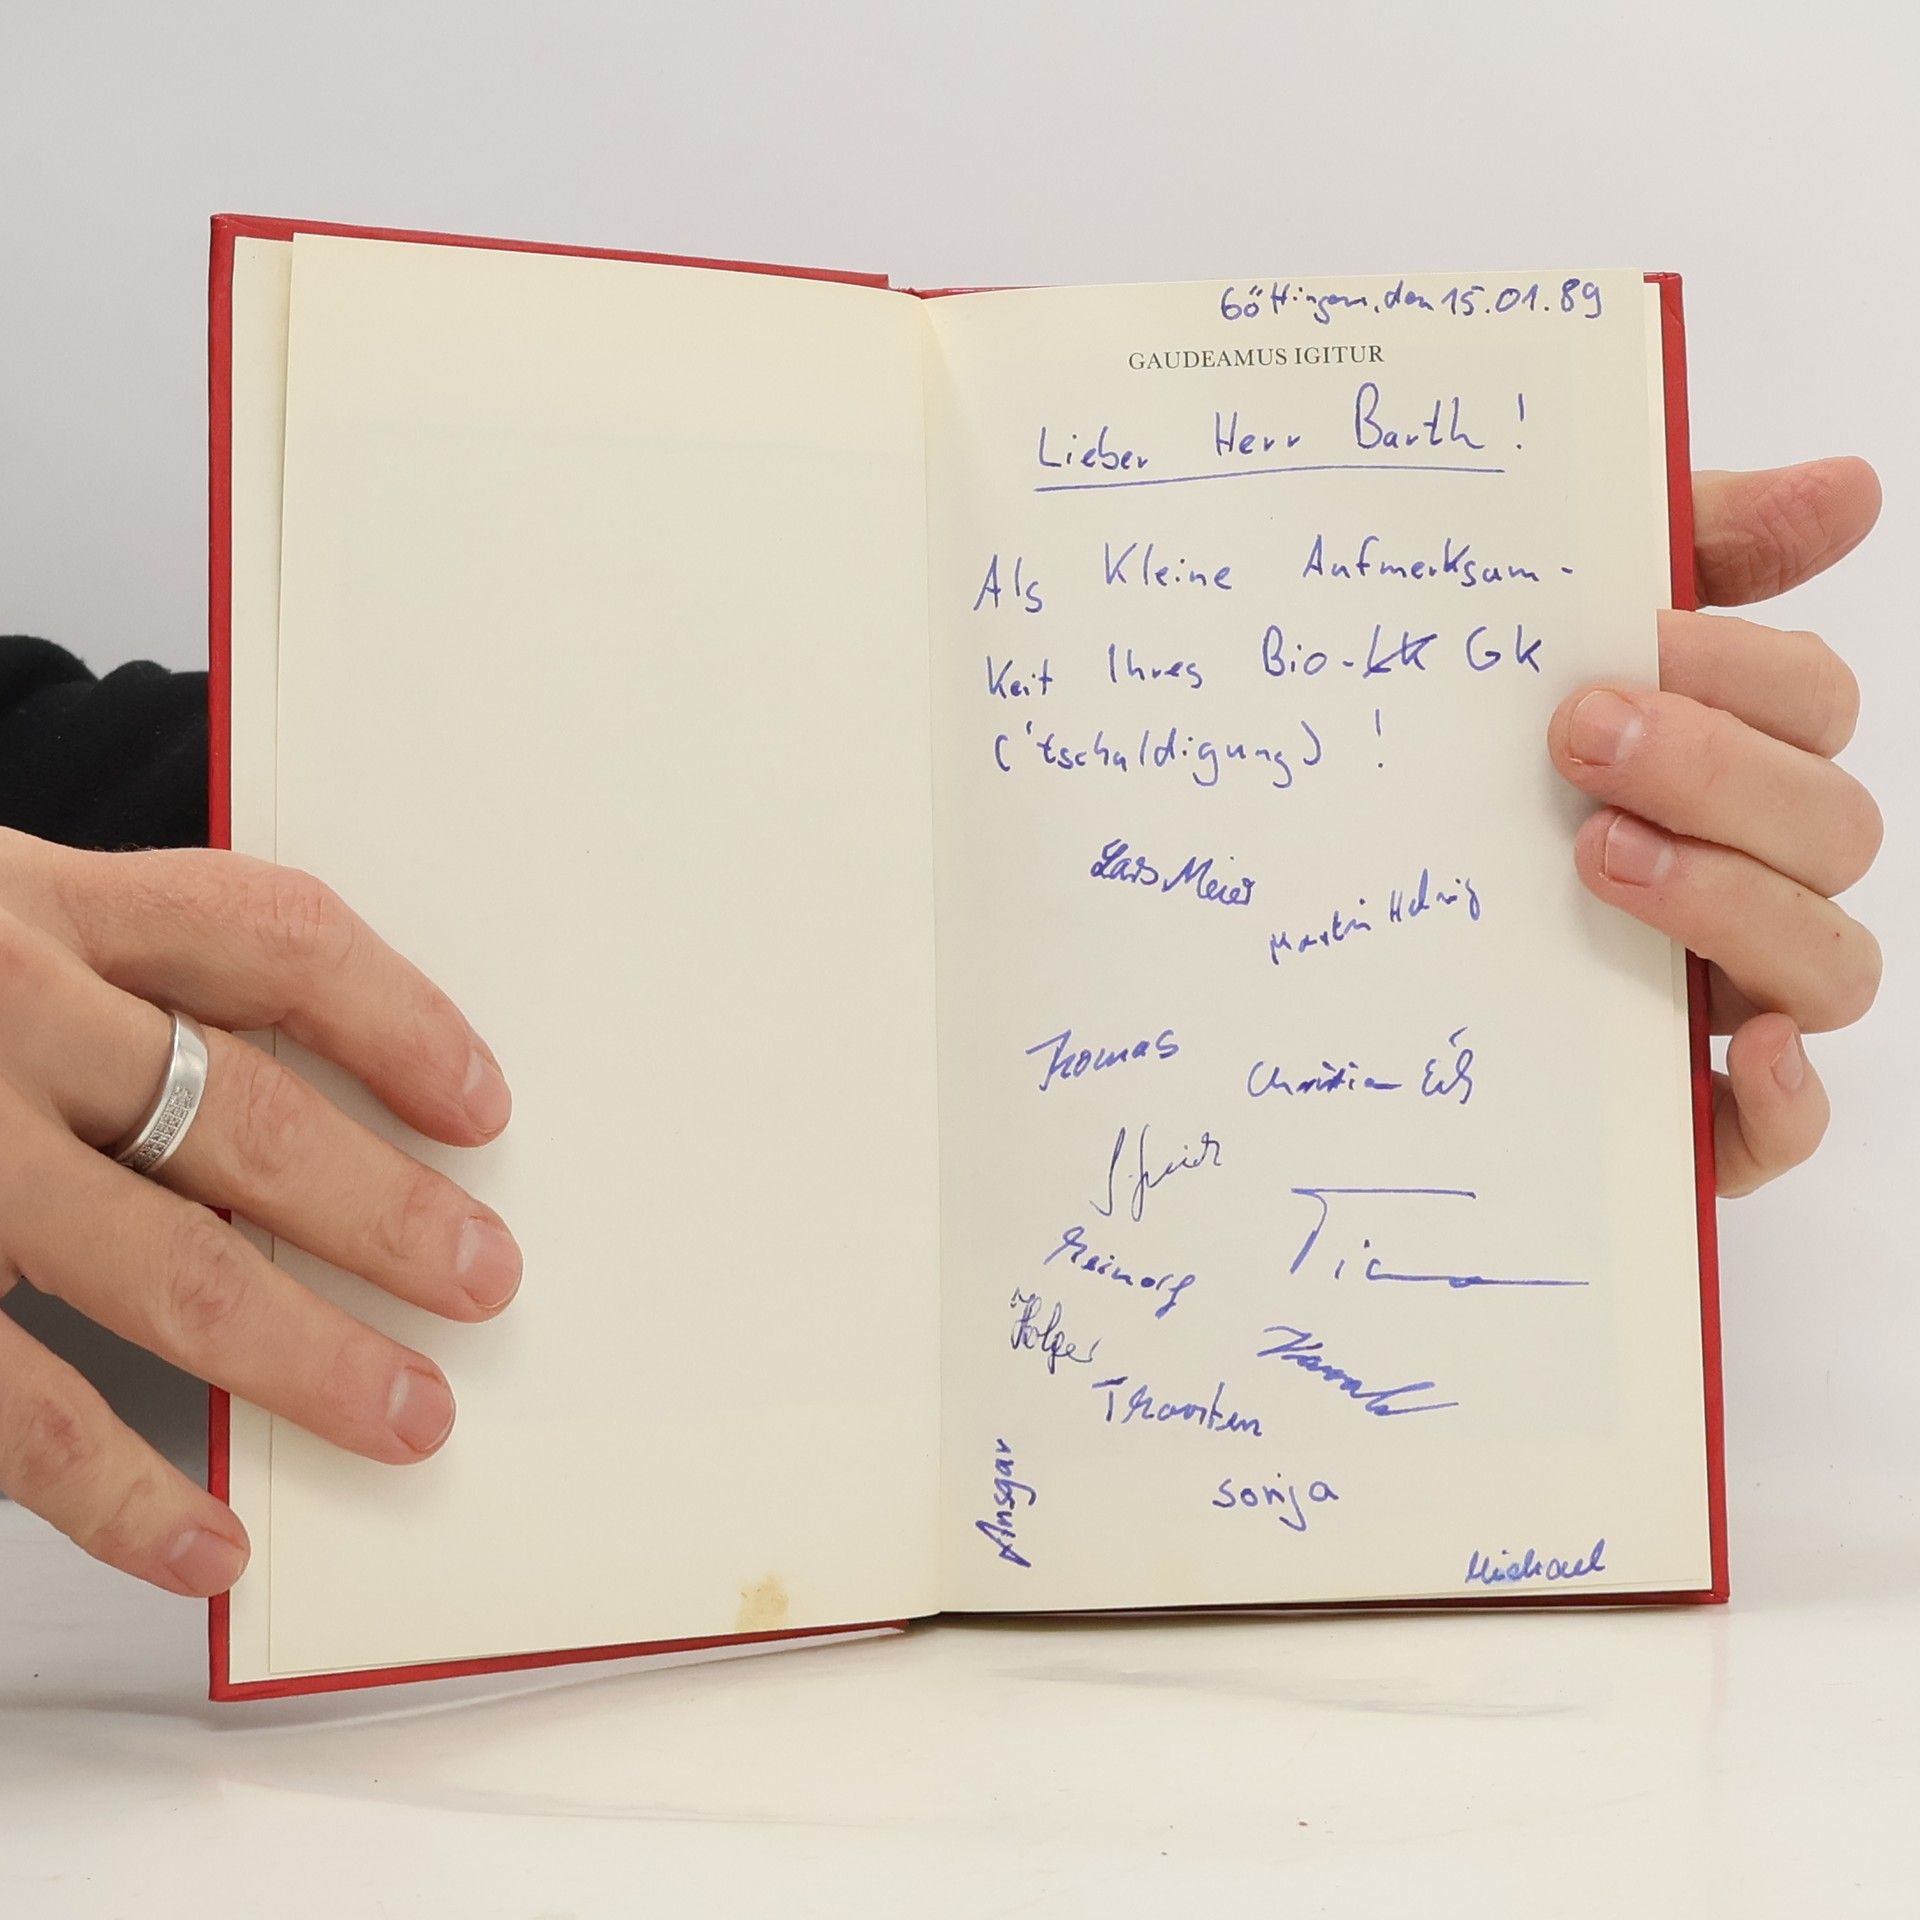 Göttingen, den 15.01.89
GAUDEAMUS IGITUR
Lieber Herr Barth!
Als Kleine Aufmerksam-
keit Ihres Bio-LK GK
('tschuldigung)!
Lars Meier
Martin Helmig
Thomas
Christian
Holger
Thorsten
Ansgar
Sonja
Michael